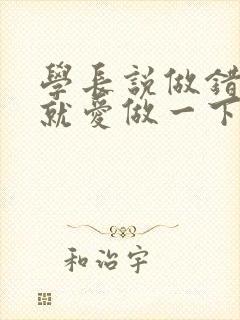 學長説做錯
就愛做一下
和治宇